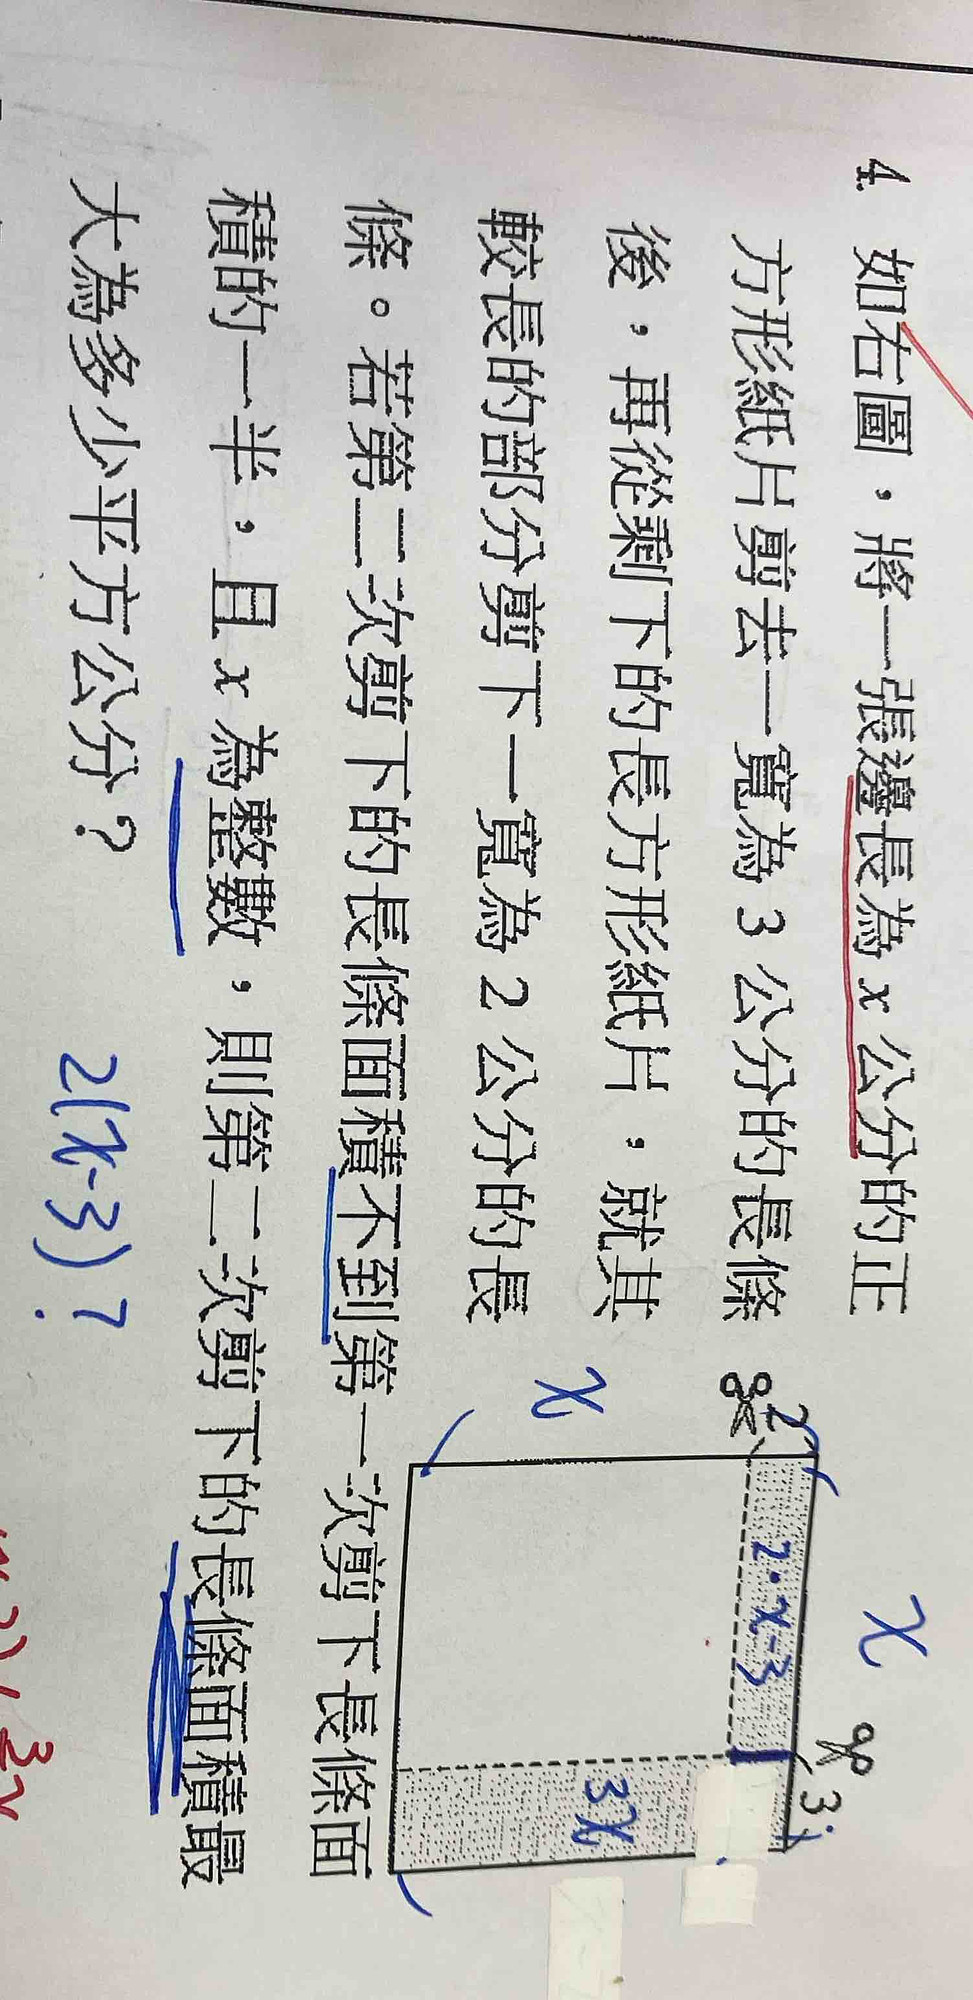 4. 如右圖，將一張邊長為 x 公分的正
方形紙片剪去一寬為 3 公分的長條
後，再從剩下的長方形紙片，就其
較長的部分剪下一寬為 2 公分的長
條。若第二次剪下的長條面積不到第一次剪下長條面
積的一半，且 x 為整數，則第二次剪下的長條面積最
大為多少平方公分？ 2(x-3)?
x
3
2
2·x-3
x
3x